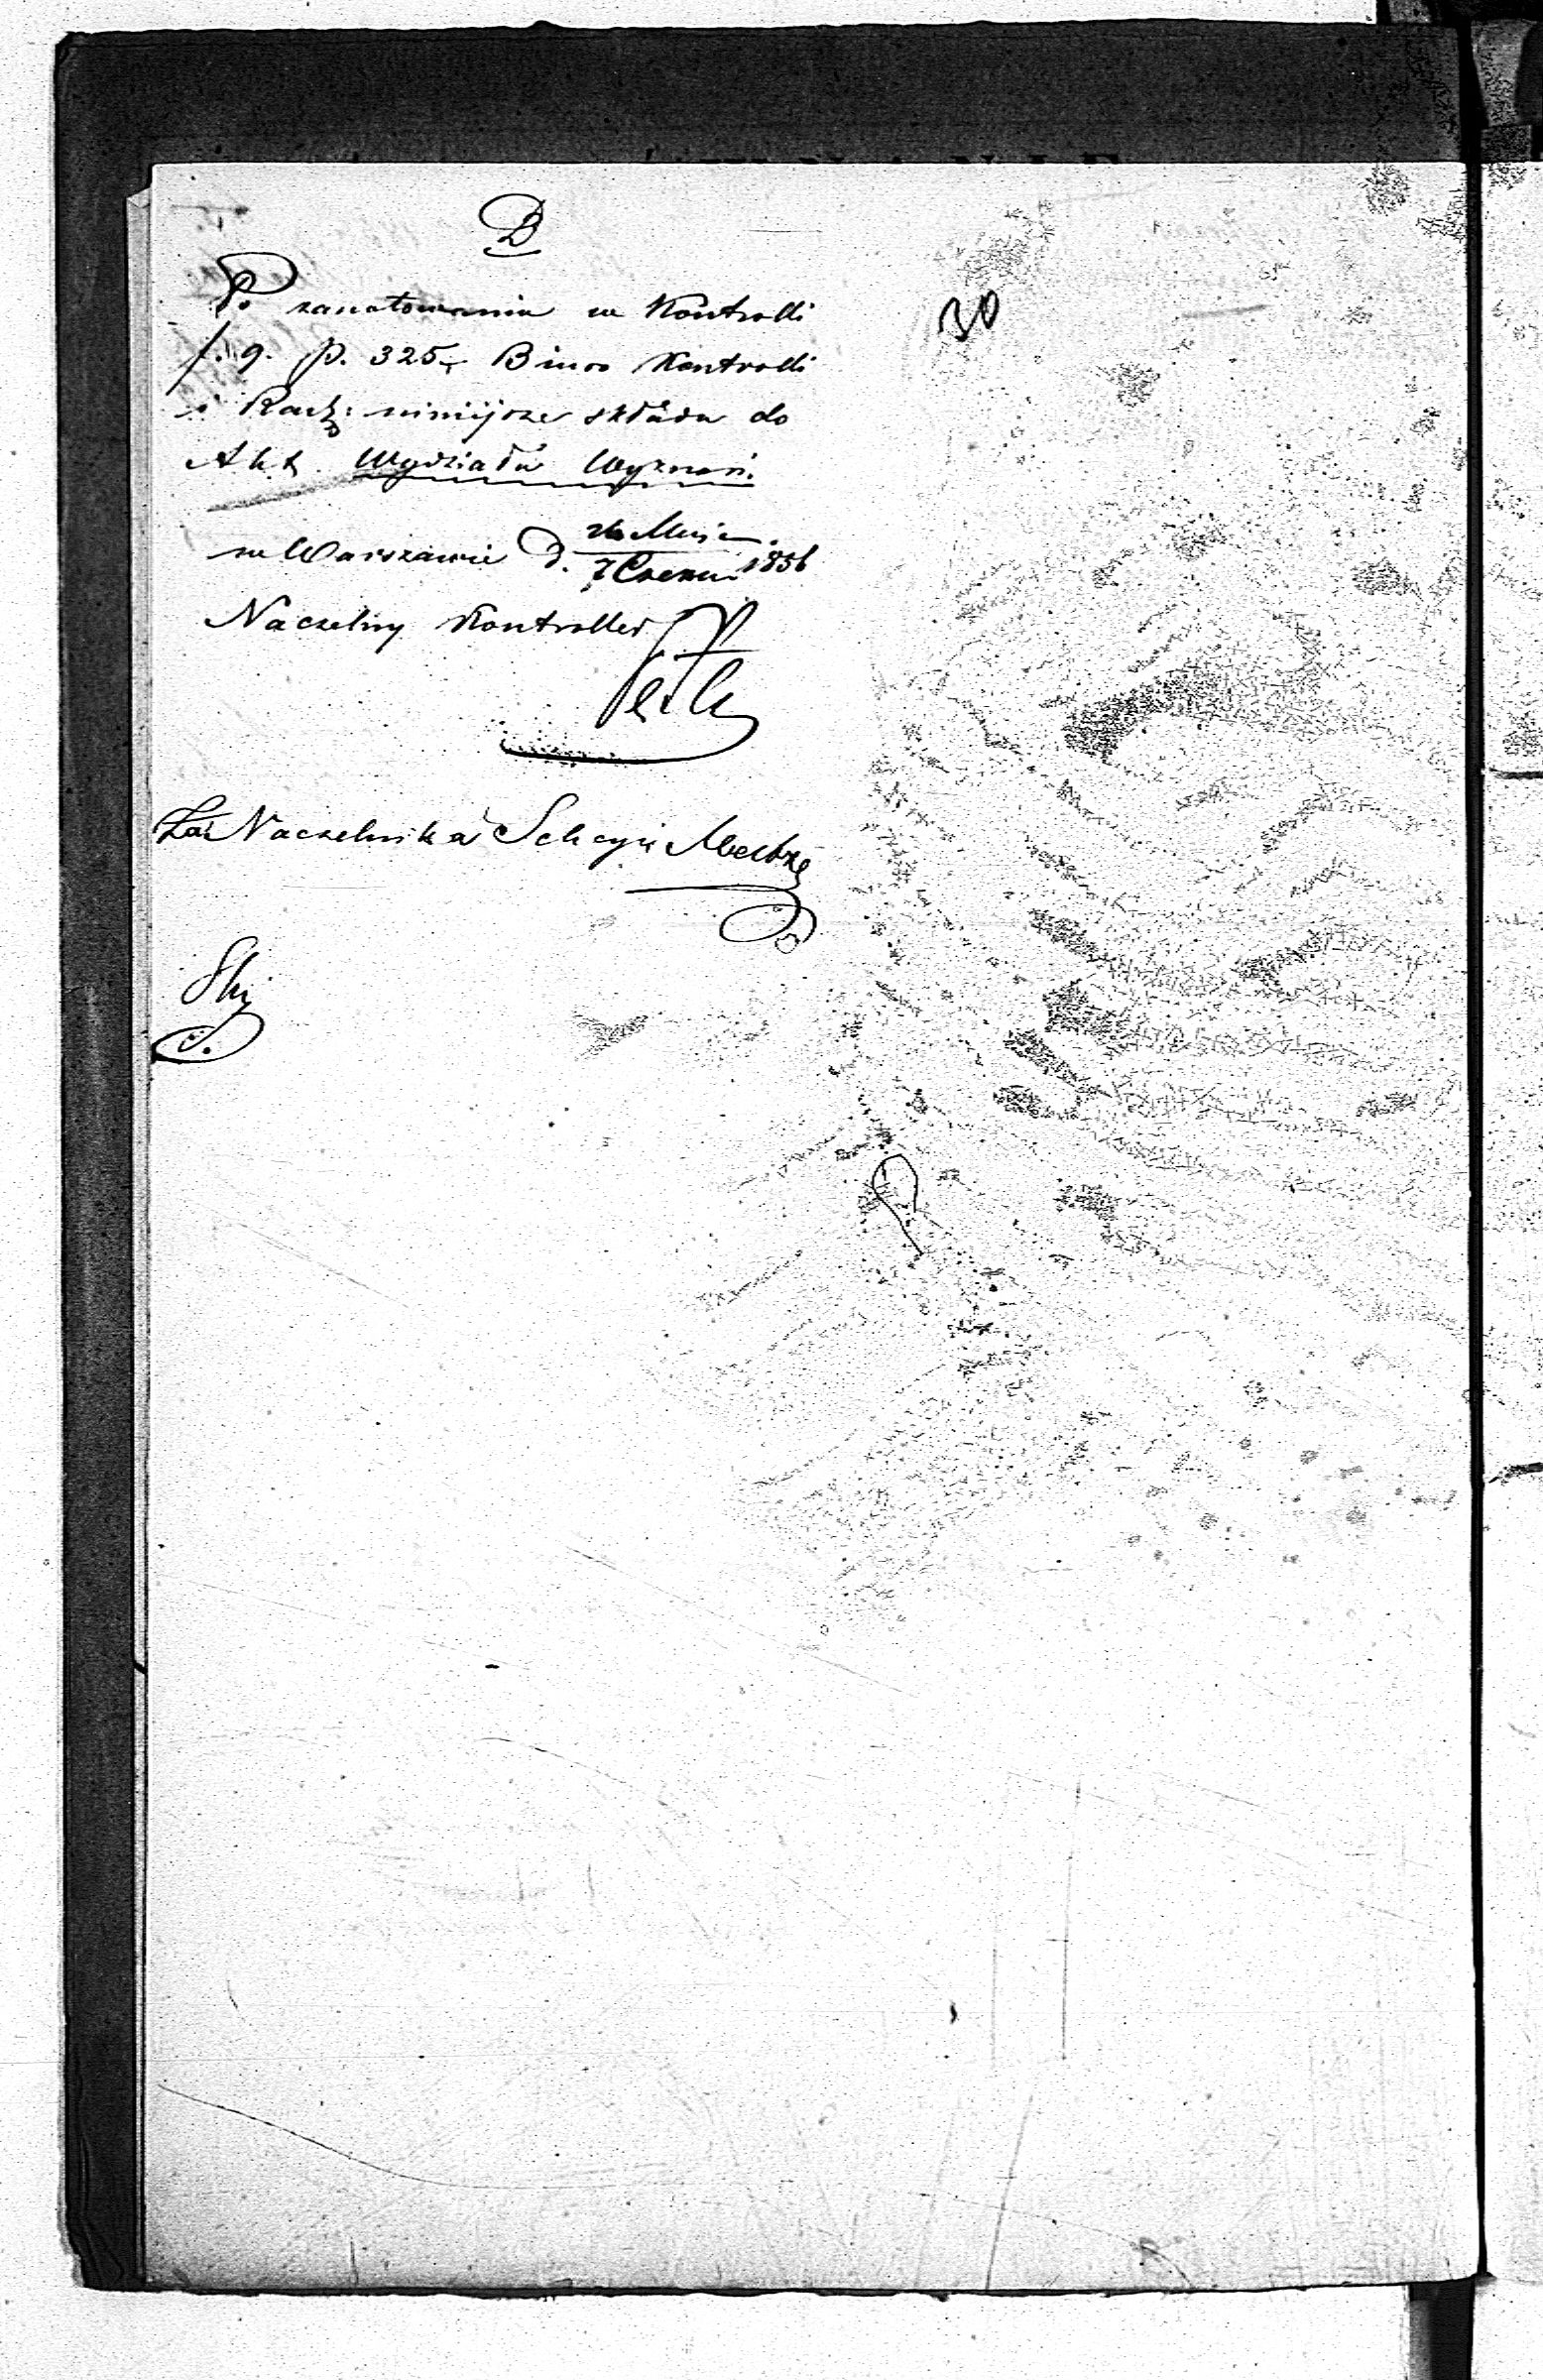 D
Po zanotowaniu w Kontrolli
f. 9. p. 325. Biuro Kontrolli
i Rach: niniejsze składa do
Akt Wydziału Wyznań.
w Warszawie d. 26 Maja
7 Czerw. 1856
Naczelny Kontroller
Za Naczelnika Sekcyi
30